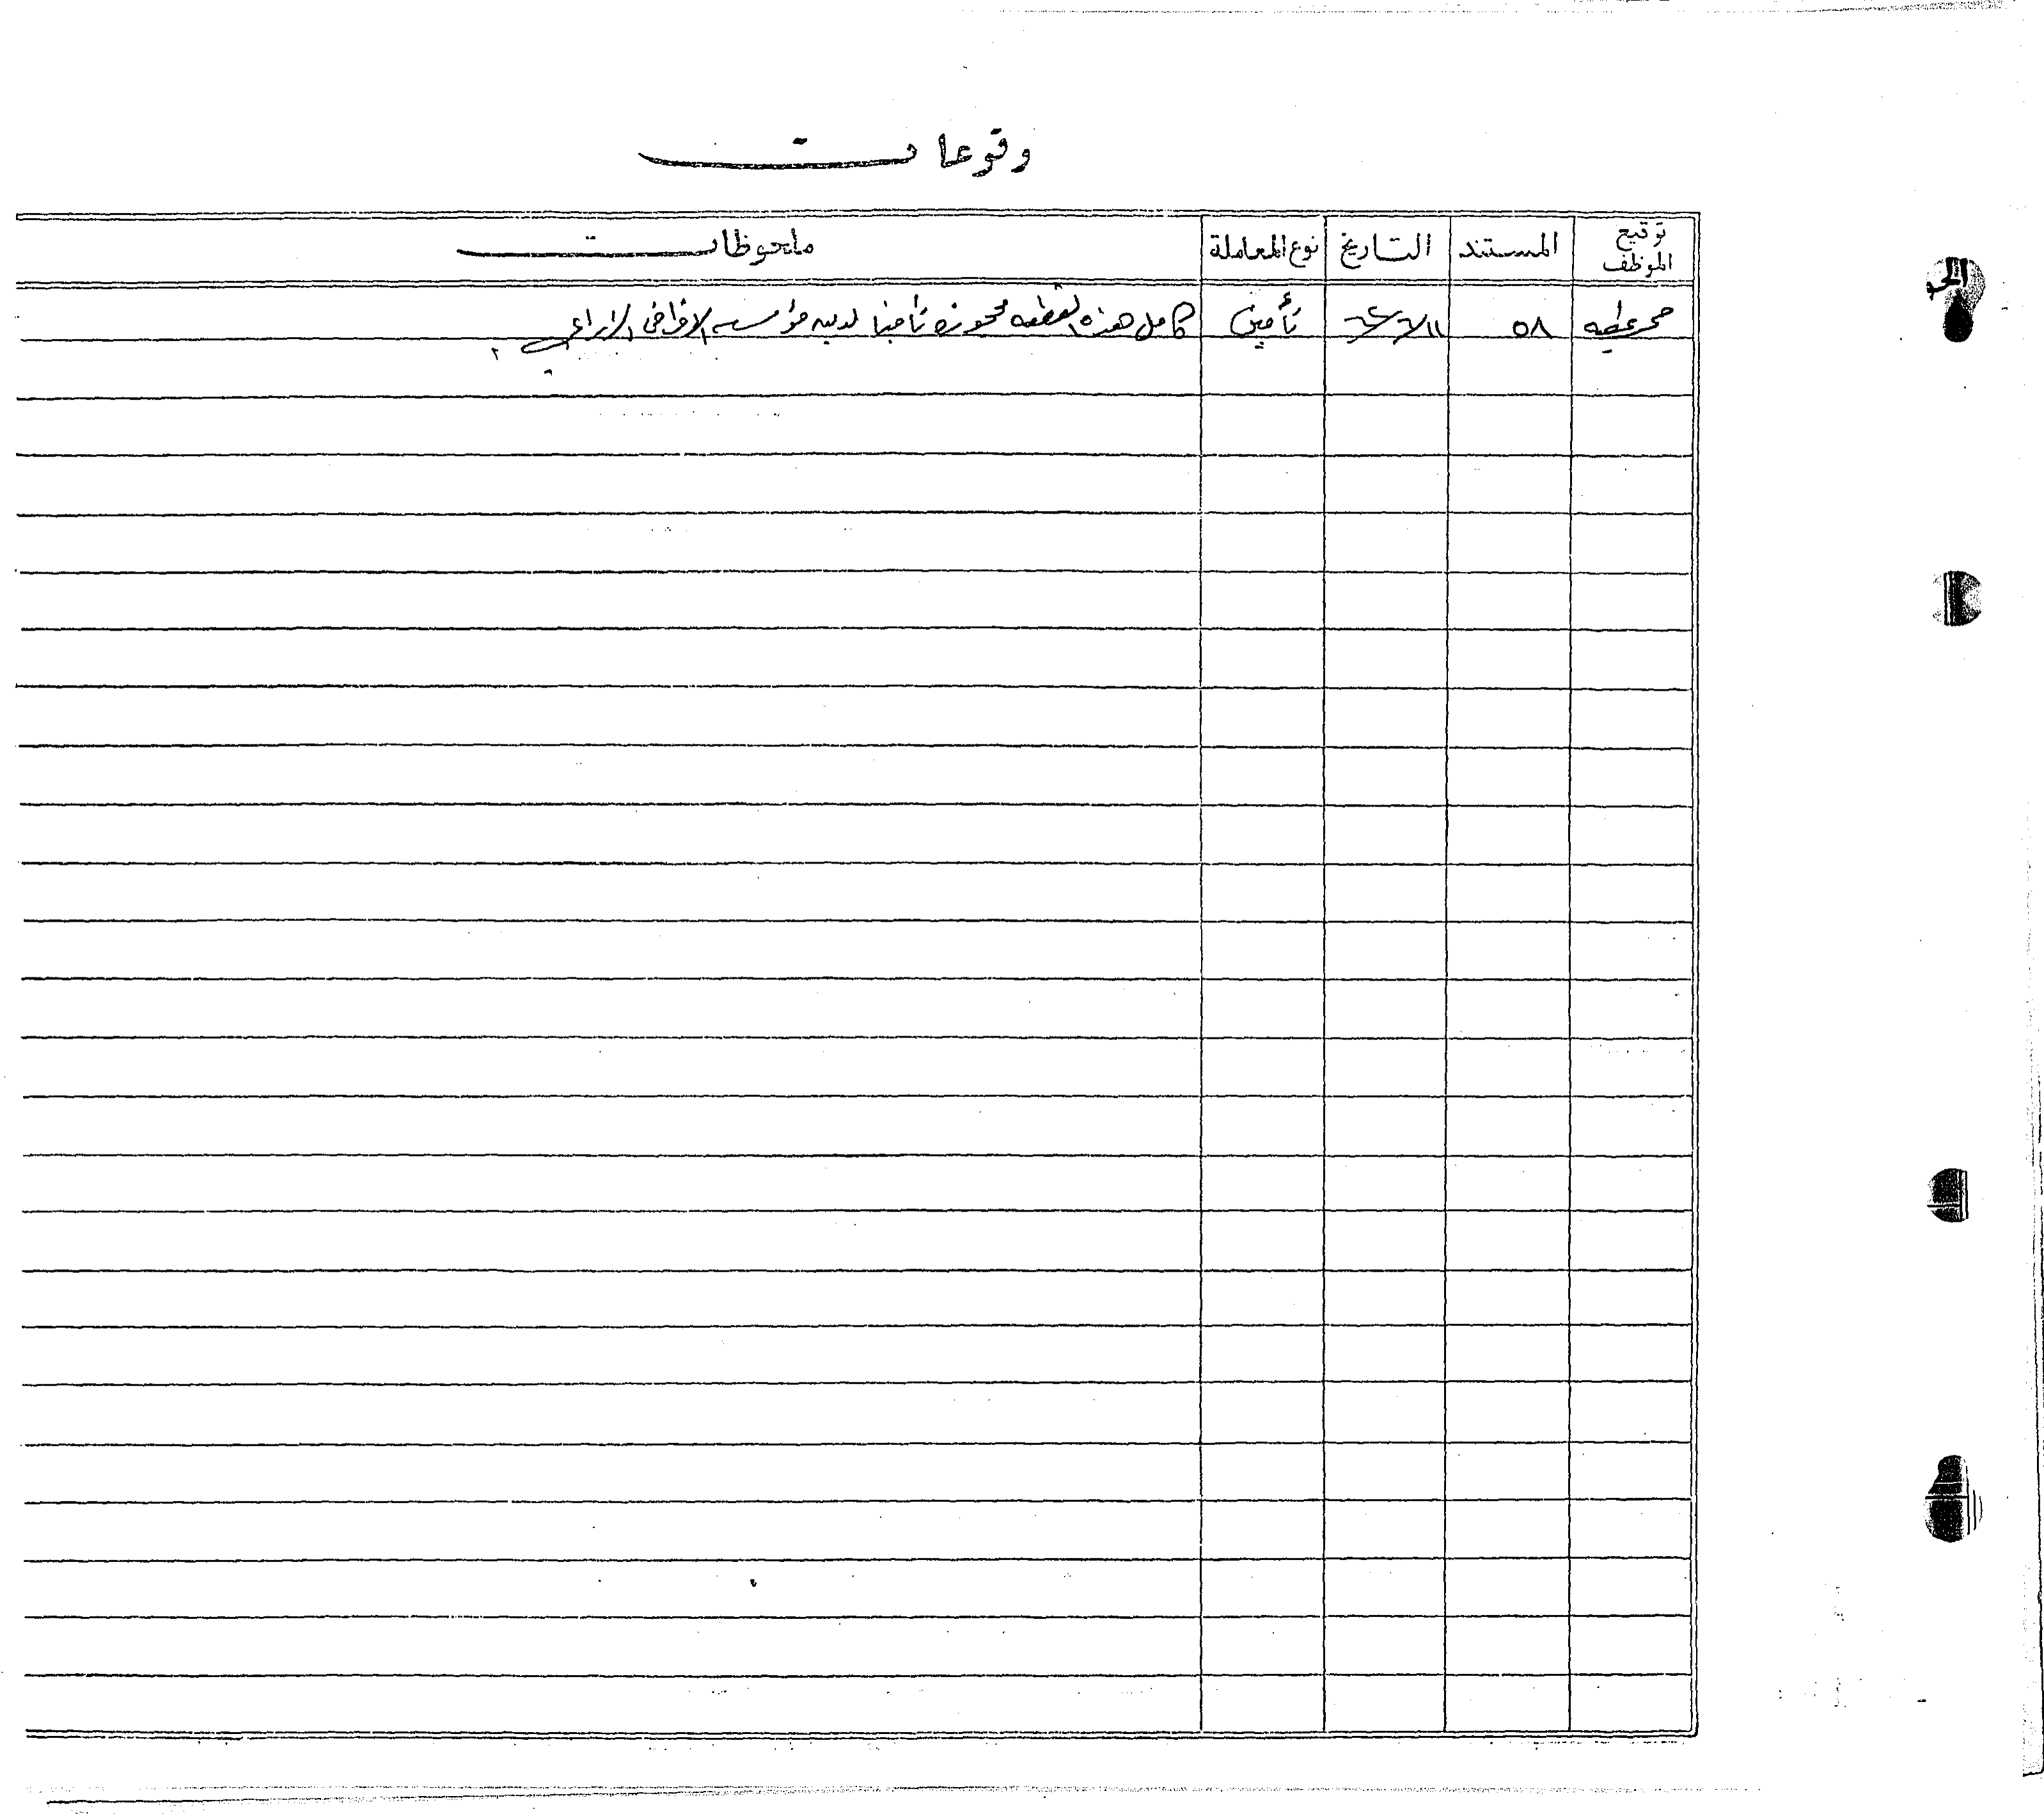 وقوعات
توقيع الموظف	المستند	التاريخ	نوع المعاملة	ملحوظات
٥٨	تأمين	كامل هذه القطعه محجوزه تأمينا لدى مؤسسه الاقراض الزراعي